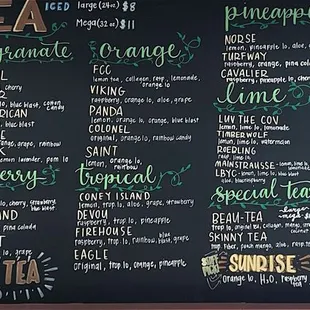 EA
ICED large (24oz) $8
Mega (32oz) $11
granate
cherry
lo, blue blast, cotton
candy
RICAN
blue blast
grape, rainbow
lavender, pom lo
erry
cherry, strawberry
blue blast
ND
pina colada
TEA
orange
FCC
lemon tea, collagen, resp, lemonade,
orange lo
VIKING
raspberry, orange lo, aloe, grape
PANDA
lemon, orange lo, orange, blue blast
COLONEL
original, orange lo, rainbow candy
SAINT
lemon, orange lo,
rainbow
tropical
CONEY ISLAND
lemon, trop lo, aloe, grape, strawberry
DEVOU
raspberry, trop lo, pineapple
FIREHOUSE
raspberry, trop lo, rainbow, blue blast,
grape
EAGLE
original, trop lo, orange, pineapple
pineapple
NORSE
lemon, pineapple lo, aloe,
TURFWAY
raspberry, orange, pina cola
CAVALIER
raspberry, pineapple lo, cherry
lime
LUV THE COV
lemon, lime lo, lemonade
TIMBERWOLF
lemon, lime lo, watermelon
ROEBLING
rasp, lime lo
MAINSTRAUSSE - lemon, lime lo
LBYC - lemon, lime lo, blue blast
special tea
BEAU-TEA
trop lo, original tea, collagen, mango, straw
SKINNY TEA
trop, fiber, peach mango, aloe, rasp
SUNRISE
Orange lo, H2O, raspberry